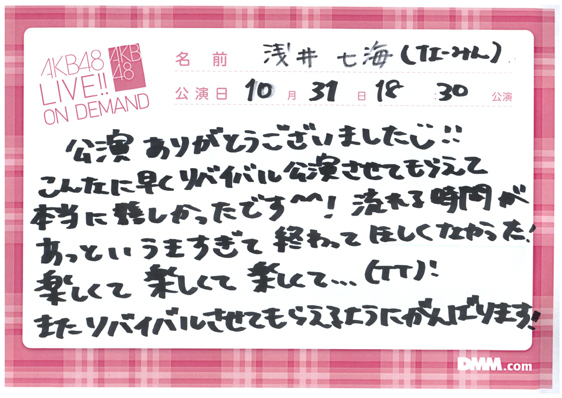 AKB48
LIVE!!
ON DEMAND
AKB
48
名前 浅井七海(なーみん)
公演日 10月31日18 30公演
公演ありがとうございましたじ!!
こんなに早くリバイバル公演させてもらえて
本当に嬉しかったです^^! 流れる時間が
あっというますぎて終わってほしくなかった!
楽しくて楽しくて楽しくて...(TT)!
またリバイバルさせてもらえるようにがんばります!
DMM.com